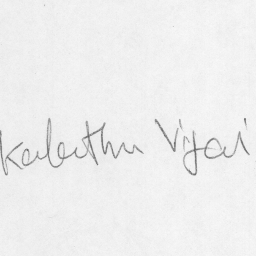 Kalathu Vijai